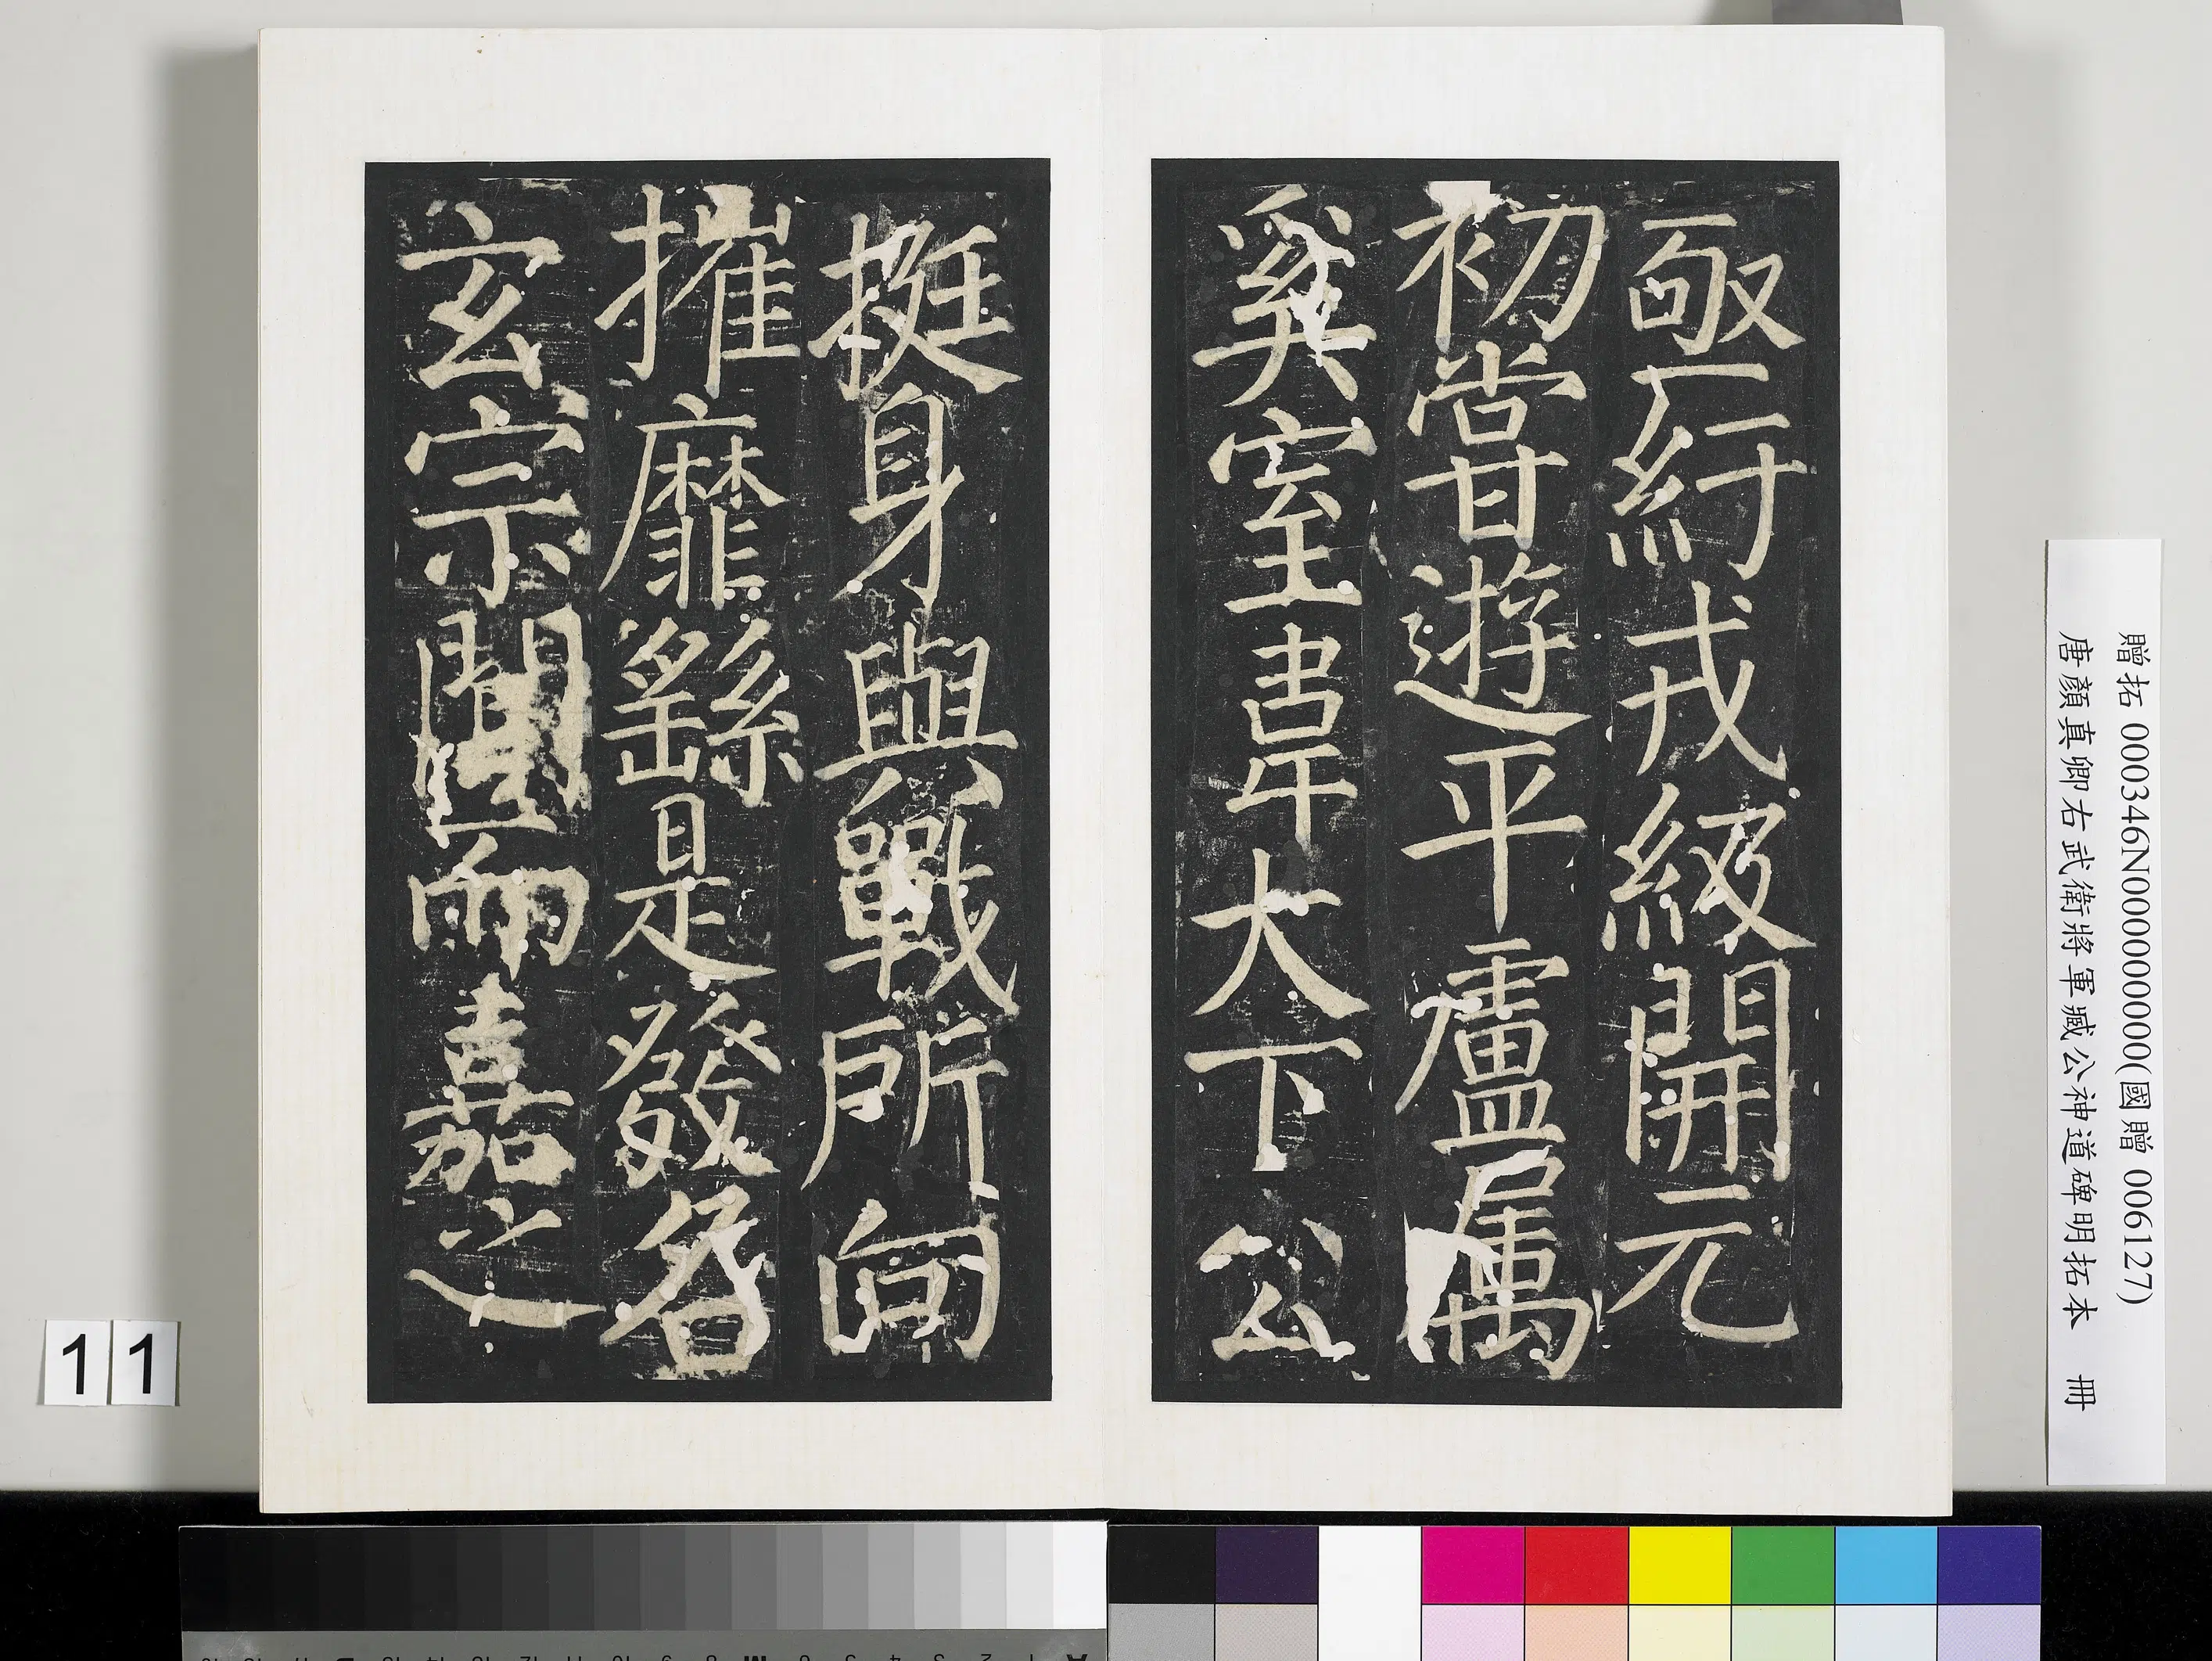 亟紆戎級開元
初嘗遊平盧属
奚室韋大下公
挺身與戰所向
摧靡繇是發名
玄宗聞而嘉之
贈拓 000346N000000000(國贈 006127)
唐顏真卿右武衛將軍臧公神道碑明拓本 冊
11